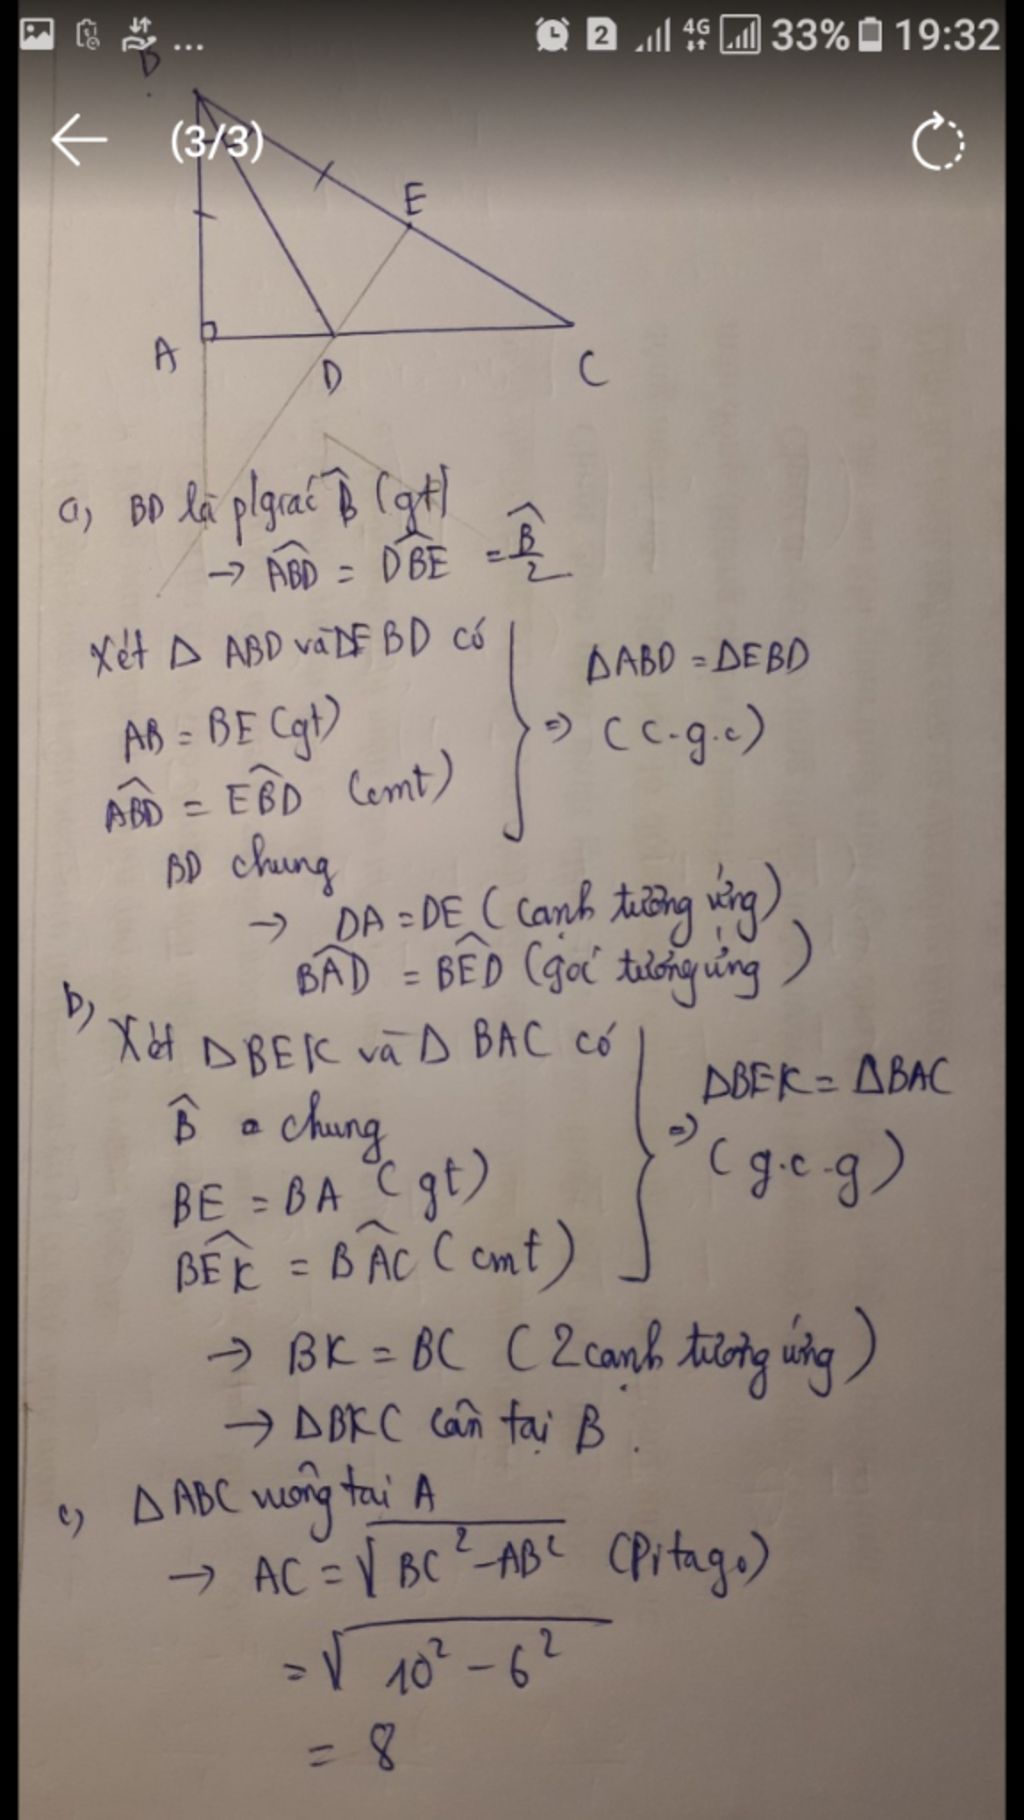 ... 2 4G 33% 19:32
(3/3)
B
E
A
D
C
a, BD là p/giác B̂ (gt)
→ ABD̂ = DBÊ = B̂/2
Xét Δ ABD và ΔEBD có
AB = BE (gt)
ABD̂ = EBD̂ (cmt)
BD chung
⇒ ΔABD = ΔEBD
(c.g.c)
→ DA = DE (cạnh tương ứng)
BAD̂ = BED̂ (góc tương ứng)
b, Xét ΔBEK và Δ BAC có
B̂ chung
BE = BA (gt)
BEK̂ = BAĈ (cmt)
⇒ ΔBEK = ΔBAC
(g.c.g)
→ BK = BC (2 cạnh tương ứng)
→ ΔBKC cân tại B.
c, ΔABC vuông tai A
→ AC = √BC² - AB² (Pitago)
= √10² - 6²
= 8